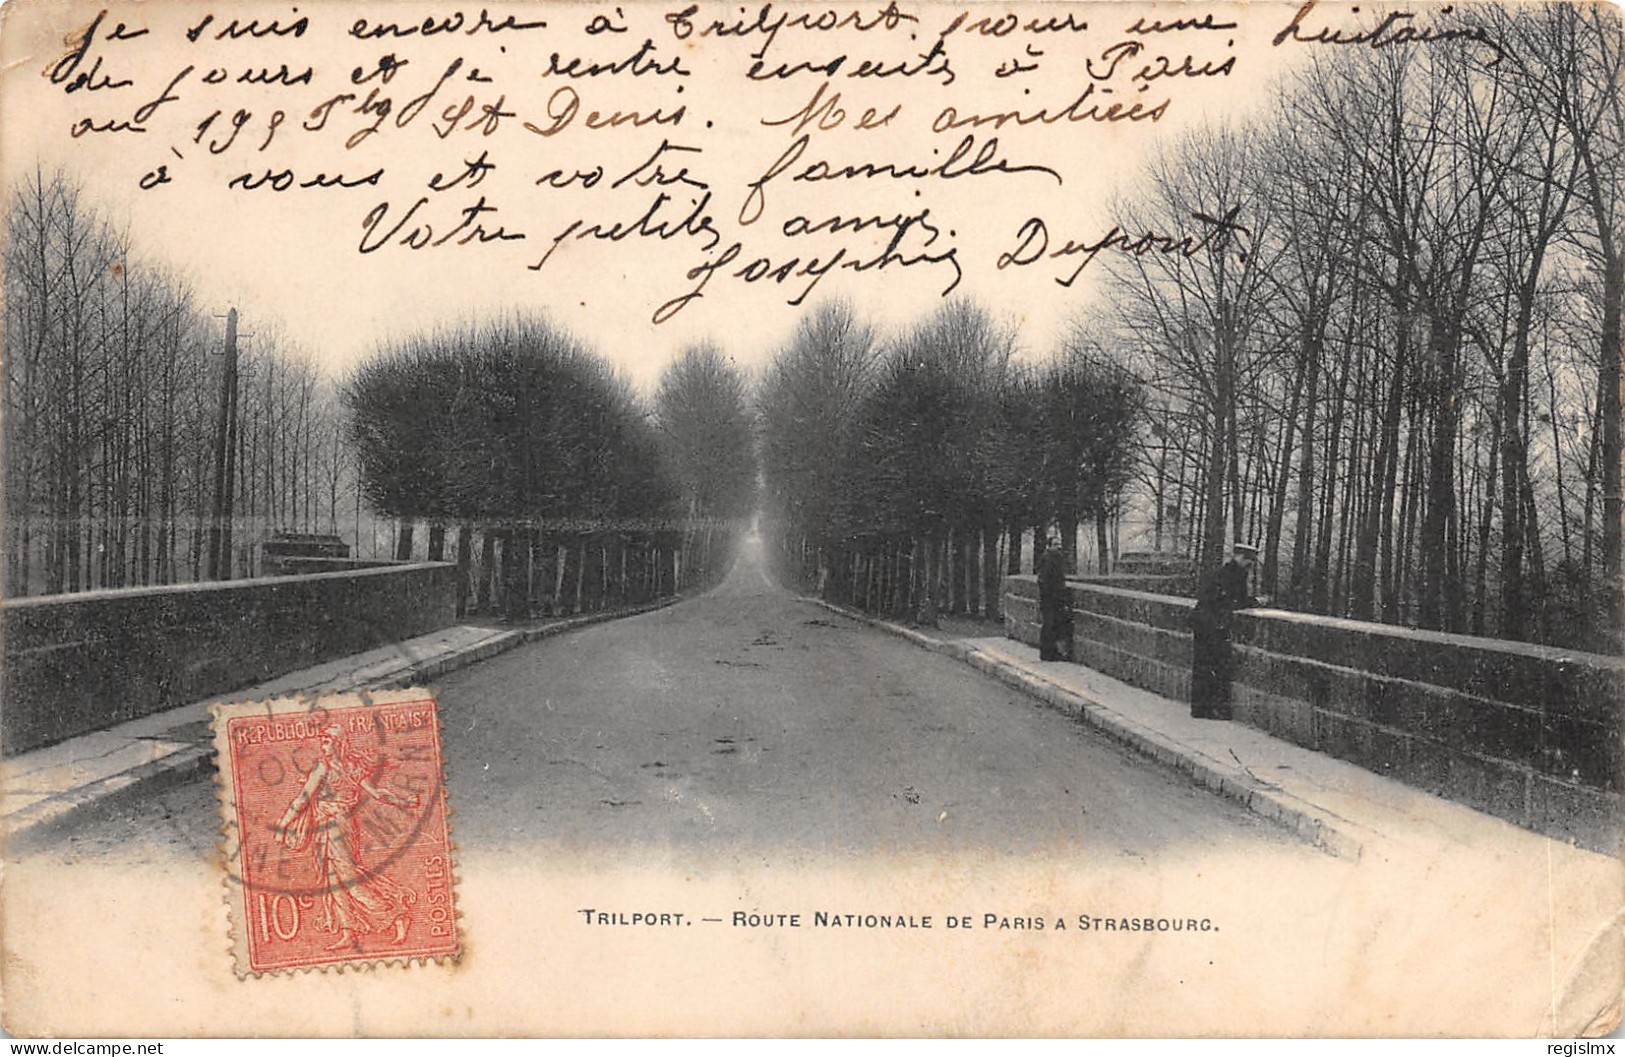 Je suis encore à Trilport pour une huitaine
de jours et je rentre ensuite à Paris
au 195 Fbg St Denis. Mes amitiées
à vous et votre famille
Votre petite amie.
Josephine Dupont.
REPUBLIQUE FRANÇAISE
OC
NE-ET-MARNE
10c
POSTES
TRILPORT. — ROUTE NATIONALE DE PARIS A STRASBOURG.
delcampe.net
regislmx